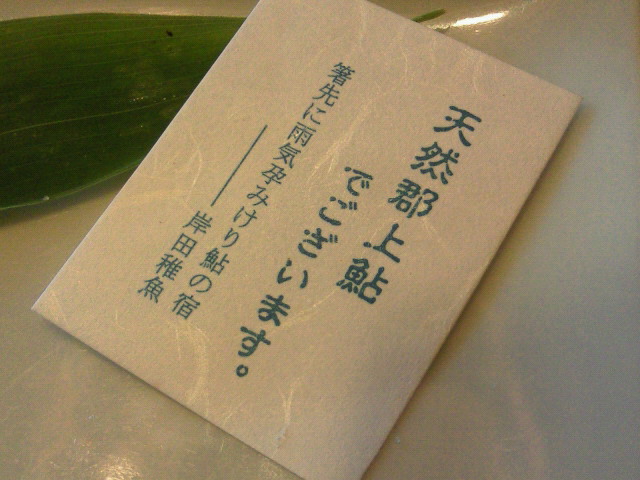 天然郡上鮎
でございます。
箸先に雨気孕みけり鮎の宿
――岸田稚魚